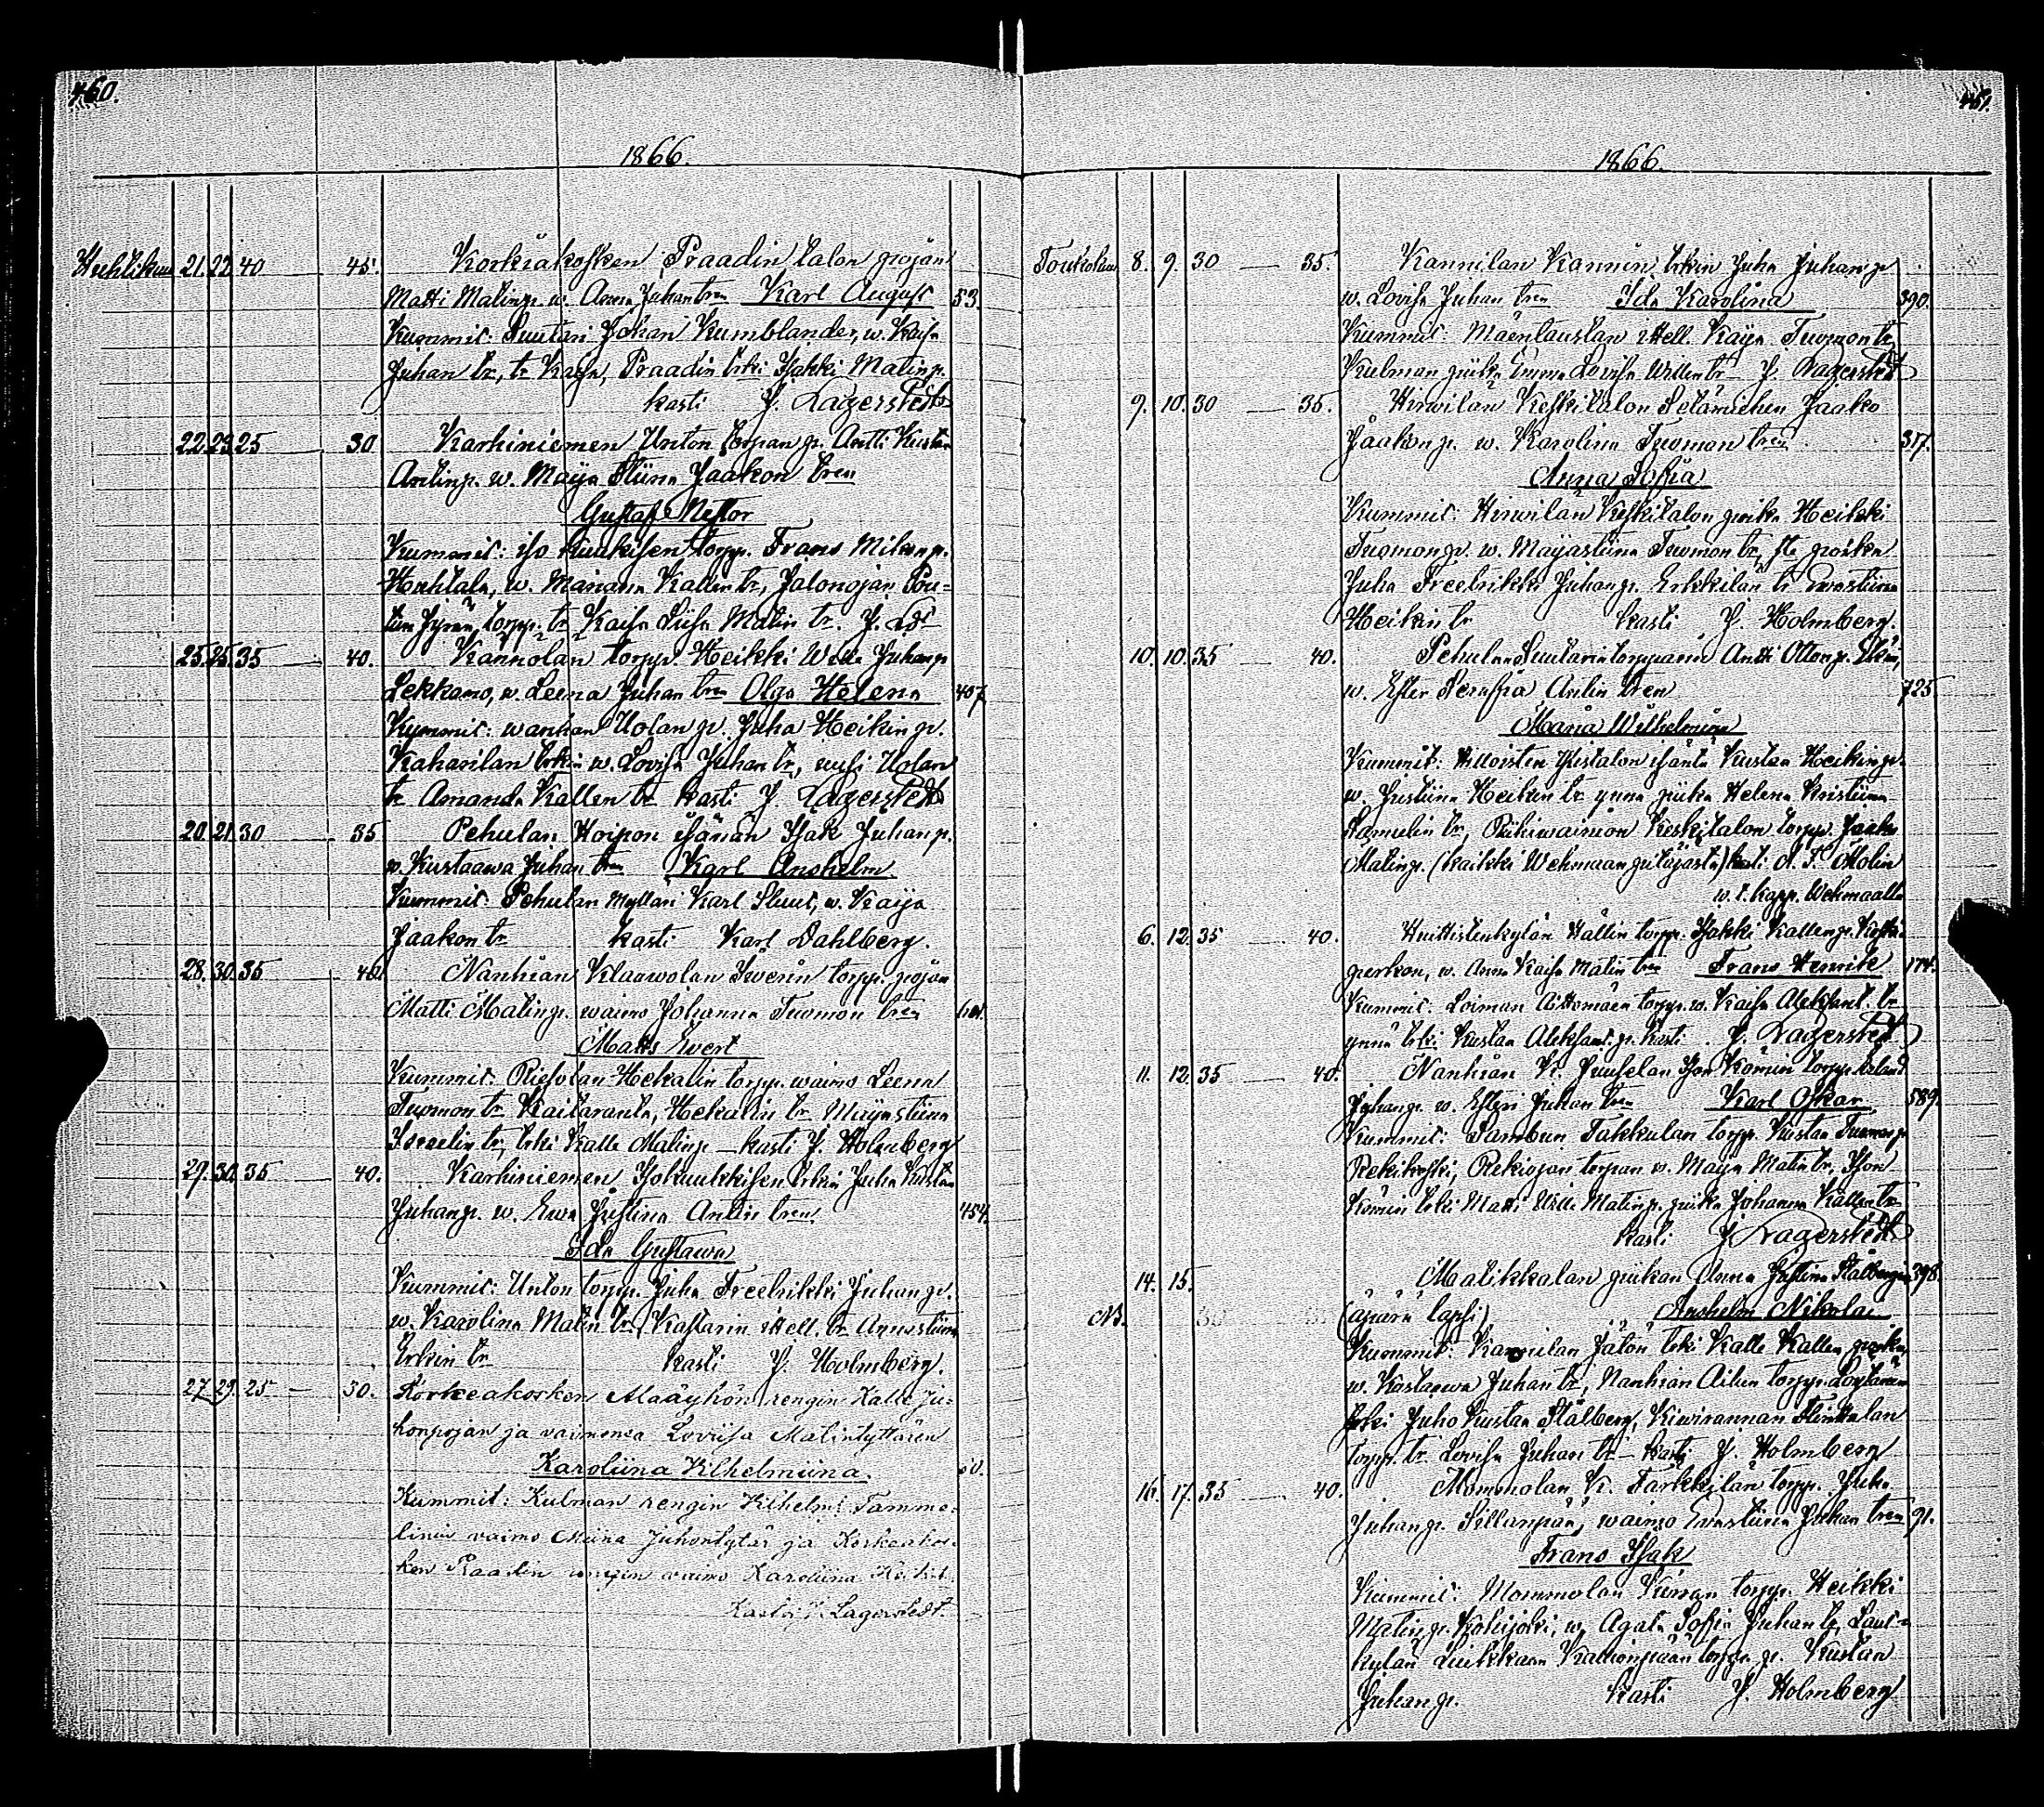 460.
1866.
Huhtikuu 21. 22. 40 — 45. Korkiakosken Praadin talon pojan
Matti Matinp. w. Anna Juhantren Karl August 53.
Kummit: Suutari Johan Kumblander, w. Kaisa
Juhan tr, tr Kaisa, Praadin trki Isakki Matinp.
kasti J. Lagerstedt
22. 23. 25 — 30. Karhiniemen Unton torpan p. Antti Kustaa
Antinp. w. Maija Stiina Jaakon tren
Gustaf Nestor
Kummit: iso Kuukisen torpp. Frans Mikonp.
Huhtala, w. Mariana Kallen tr, Jalonojan
torpp. tr Kaisa Liisa Matin tr. J. Ldt
25. 25. 35 — 40. Kannolan torpp. Heikki Wille Juhanp
Lekkamo, w. Leena Juhan tren Olga Helena 407.
Kummit: wanhan Uolan p. Juha Heikinp.
Kaharilan trkin w. Lovisa Juhan tr, uusi Uolan
tr Amanda Kallen tr kasti J. Lagerstedt
20. 21. 30 — 35 Pehulan Hoipon isännän Isak Juhanp.
w. Kustaawa Juhan tren Karl Anshelm
Kummit Pehulan Myllari Karl w. Kaija
Jaakon tr kasti Karl Dahlberg.
28. 30. 35 — 40. Nanhian Klaawolan Sverin torpp. pojan
Matti Matinp. waimo Johanna Tuomon tren
Matts Evert
Kummit: Riesolan Hekalin torpp. waimo Leena
Tuomon tr Kaitaranta, Hekalin tr Maijastiina
Israelin tr, trki Kalle Matinp — kasti J. Holmberg
29. 30. 35 — 40. Karhiniemen Isokuukkisen trkin Juha Kustaa
Juhanp. w. Ewa Justina Antin tren 454.
Ida Gustawa
Kummit: Unton torpp. Juha Freedrikki Juhanp.
w. Karolina Matin tr, Kastarin itell. tr Annastiina
Erkin tr kasti J. Holmberg.
27. 29. 25 — 30. Korkeakosken Maäyhön rengin Kalle Ju-
honpojan ja vaimonsa Loviisa Matintyttären
Karoliina Vilhelmiina.
Kummit: Kulman rengin Vilhelmi Tamme-
linin vaimo Miina Juhontytär ja Korkeakos-
ken Raadin rengin vaimo Karoliina
Kastoi J. Lagerstedt.
461.
1866.
Toukokuu 8. 9. 30 — 35. Kannilan Kannin trkin Juha Juhanp
w. Lovisa Juhan tren Ida Karolina 390.
Kummit: Mäentaustan itell. Kaija Tuomon tr,
Kulman piika Emma Lovisa Willen tr — J. Lagerstedt
9. 10. 30 — 35. Hirwilän Keskitalon Jaako
Jaakonp. w. Karolina Tuomon tren 317.
Anna Sofia
Kummit: Hirwilän Keskitalon poika Heikki
Tuomonp. w. Maijastiina Tuomon tr, poika
Juha Freedrikki Juhanp. Erkkilän tr Ewastiina
Heikin tr kasti J. Holmberg.
10. 10. 35 — 40. Pehulan Suutarin torpparin Antti Ottonp.
w. Ester Serafia Antin tren 725.
Maria Wilhelmina
Kummit: Ylistalon isäntä Kustaa Heikinp.
w. Justiina Heikin tr ynnä piika Helena Kristiina
Samulin tr, Keskitalon torpp. Jaako
Matinp. (kaikki Wehmaan pitäjästä) kasti A. F. Molin
w. t. kapp. Wehmaalla
6. 12. 35 — 40. Huittistenkylän Hällin torpp. Isakki Kallenp. Koski-
perkon, w. Anna Kaisa Matin tren Frans Henrik 174.
Kummit: Loiman torpp. w. Kaisa Aleksant. tr
ynnä trki Kustaa Aleksant. p. kasti J. Lagerstedt
11. 12. 35 — 40. Nanhian K. Juuselan Ison Kömin torpp.
Juhanp. w. Esteri Juhan tren Karl Oskar 589.
Kummit: Sambun Takkulan torpp. Kustaa Tuomonp
Rekikoski, Rekiojan torpan w. Maija Matin tr, Ison
Kömin trki Matti Wille Matinp. piika Johanna Kallen tr
kasti J. Lagerstedt
14. 15. Matikkalan piikan Anna Justina Stålbergin 398.
NB. (äpärä lapsi) Anshelm Nikolai
Kummit: Kannilan Jalon trki Kalle Kallen poika
w. Kustaawa Juhan tr, Nanhian torpp.
trki Juho Kustaa Stålberg, Kiwirannan
torpp. tr Lovisa Juhan tr — kasti J. Holmberg
16. 17. 35 — 40. Mommolan K. Tarkkilan torpp. Juha
Juhanp. Sillanpää, waimo Ewastiina Juhan tren 91.
Frans Isak
Kummit: Mommolan torpp. Heikki
Matinp. Kokijoki, w. Agata Sofia Juhan tr, Laut-
kylän Liikkaan torpp. p. Kustaa
Juhanp. kasti J. Holmberg